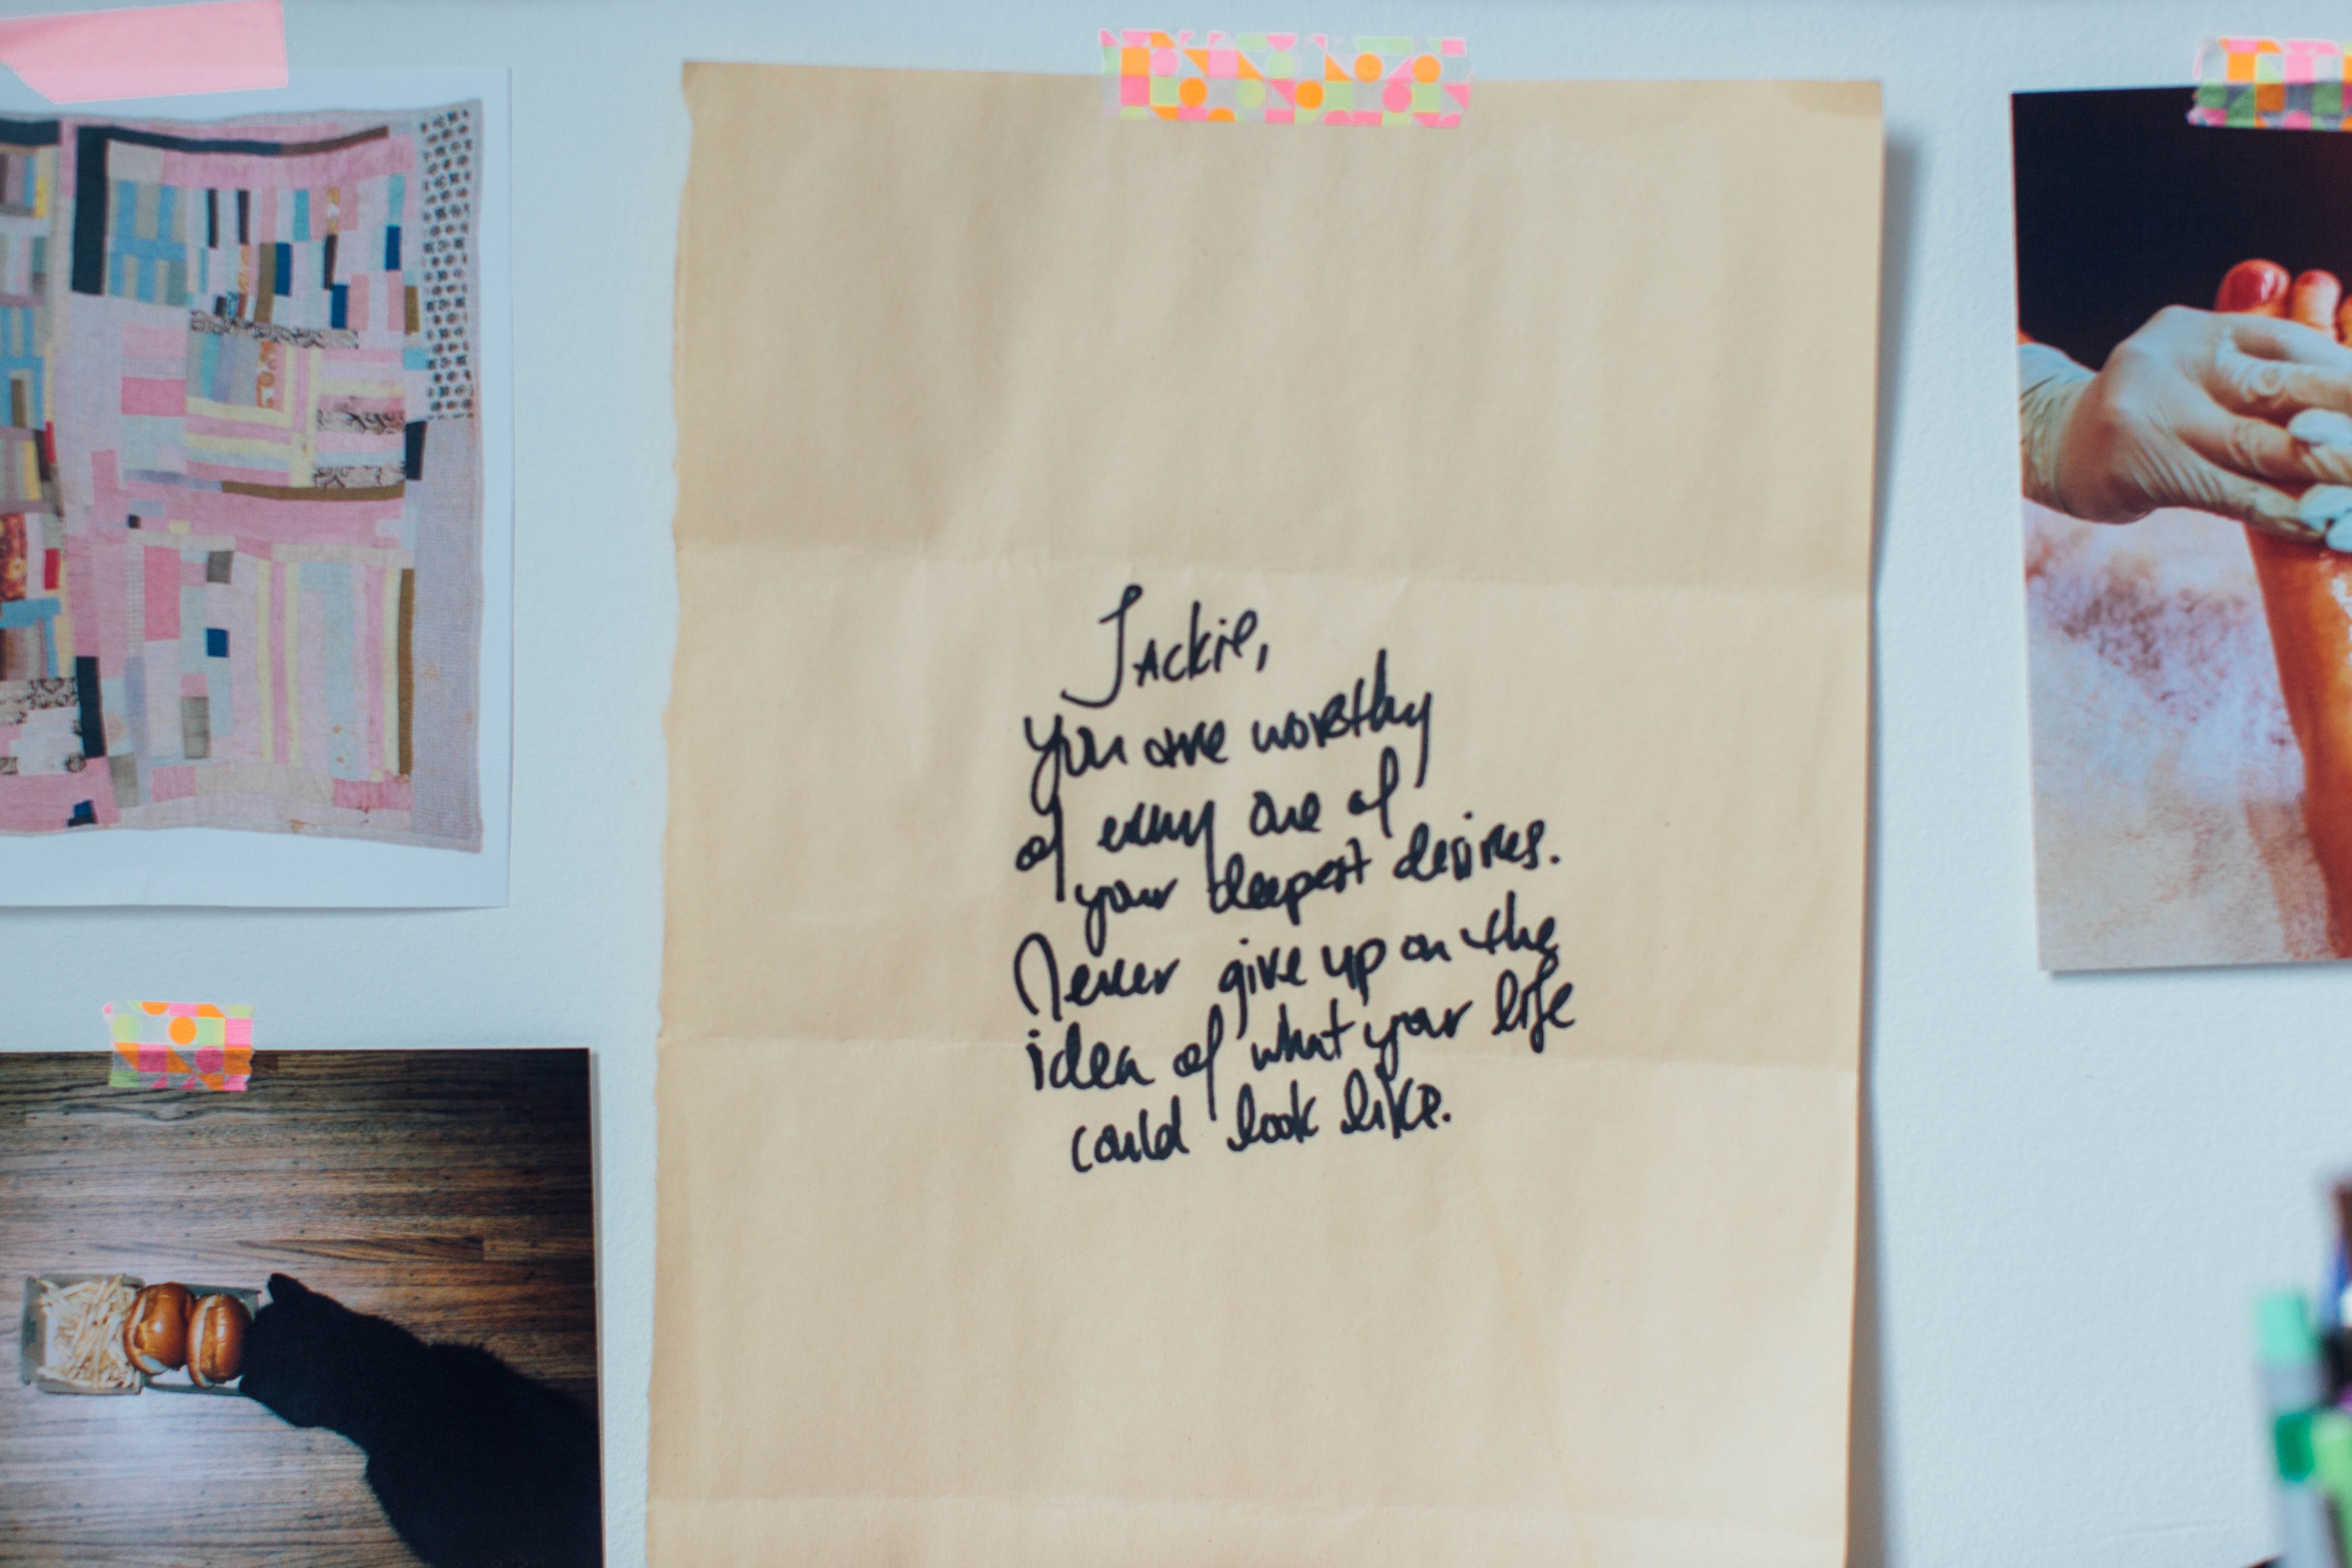 Jackie,
you are worthy
of every one of
your deepest desires.
Never give up on the
idea of what your life
could look like.